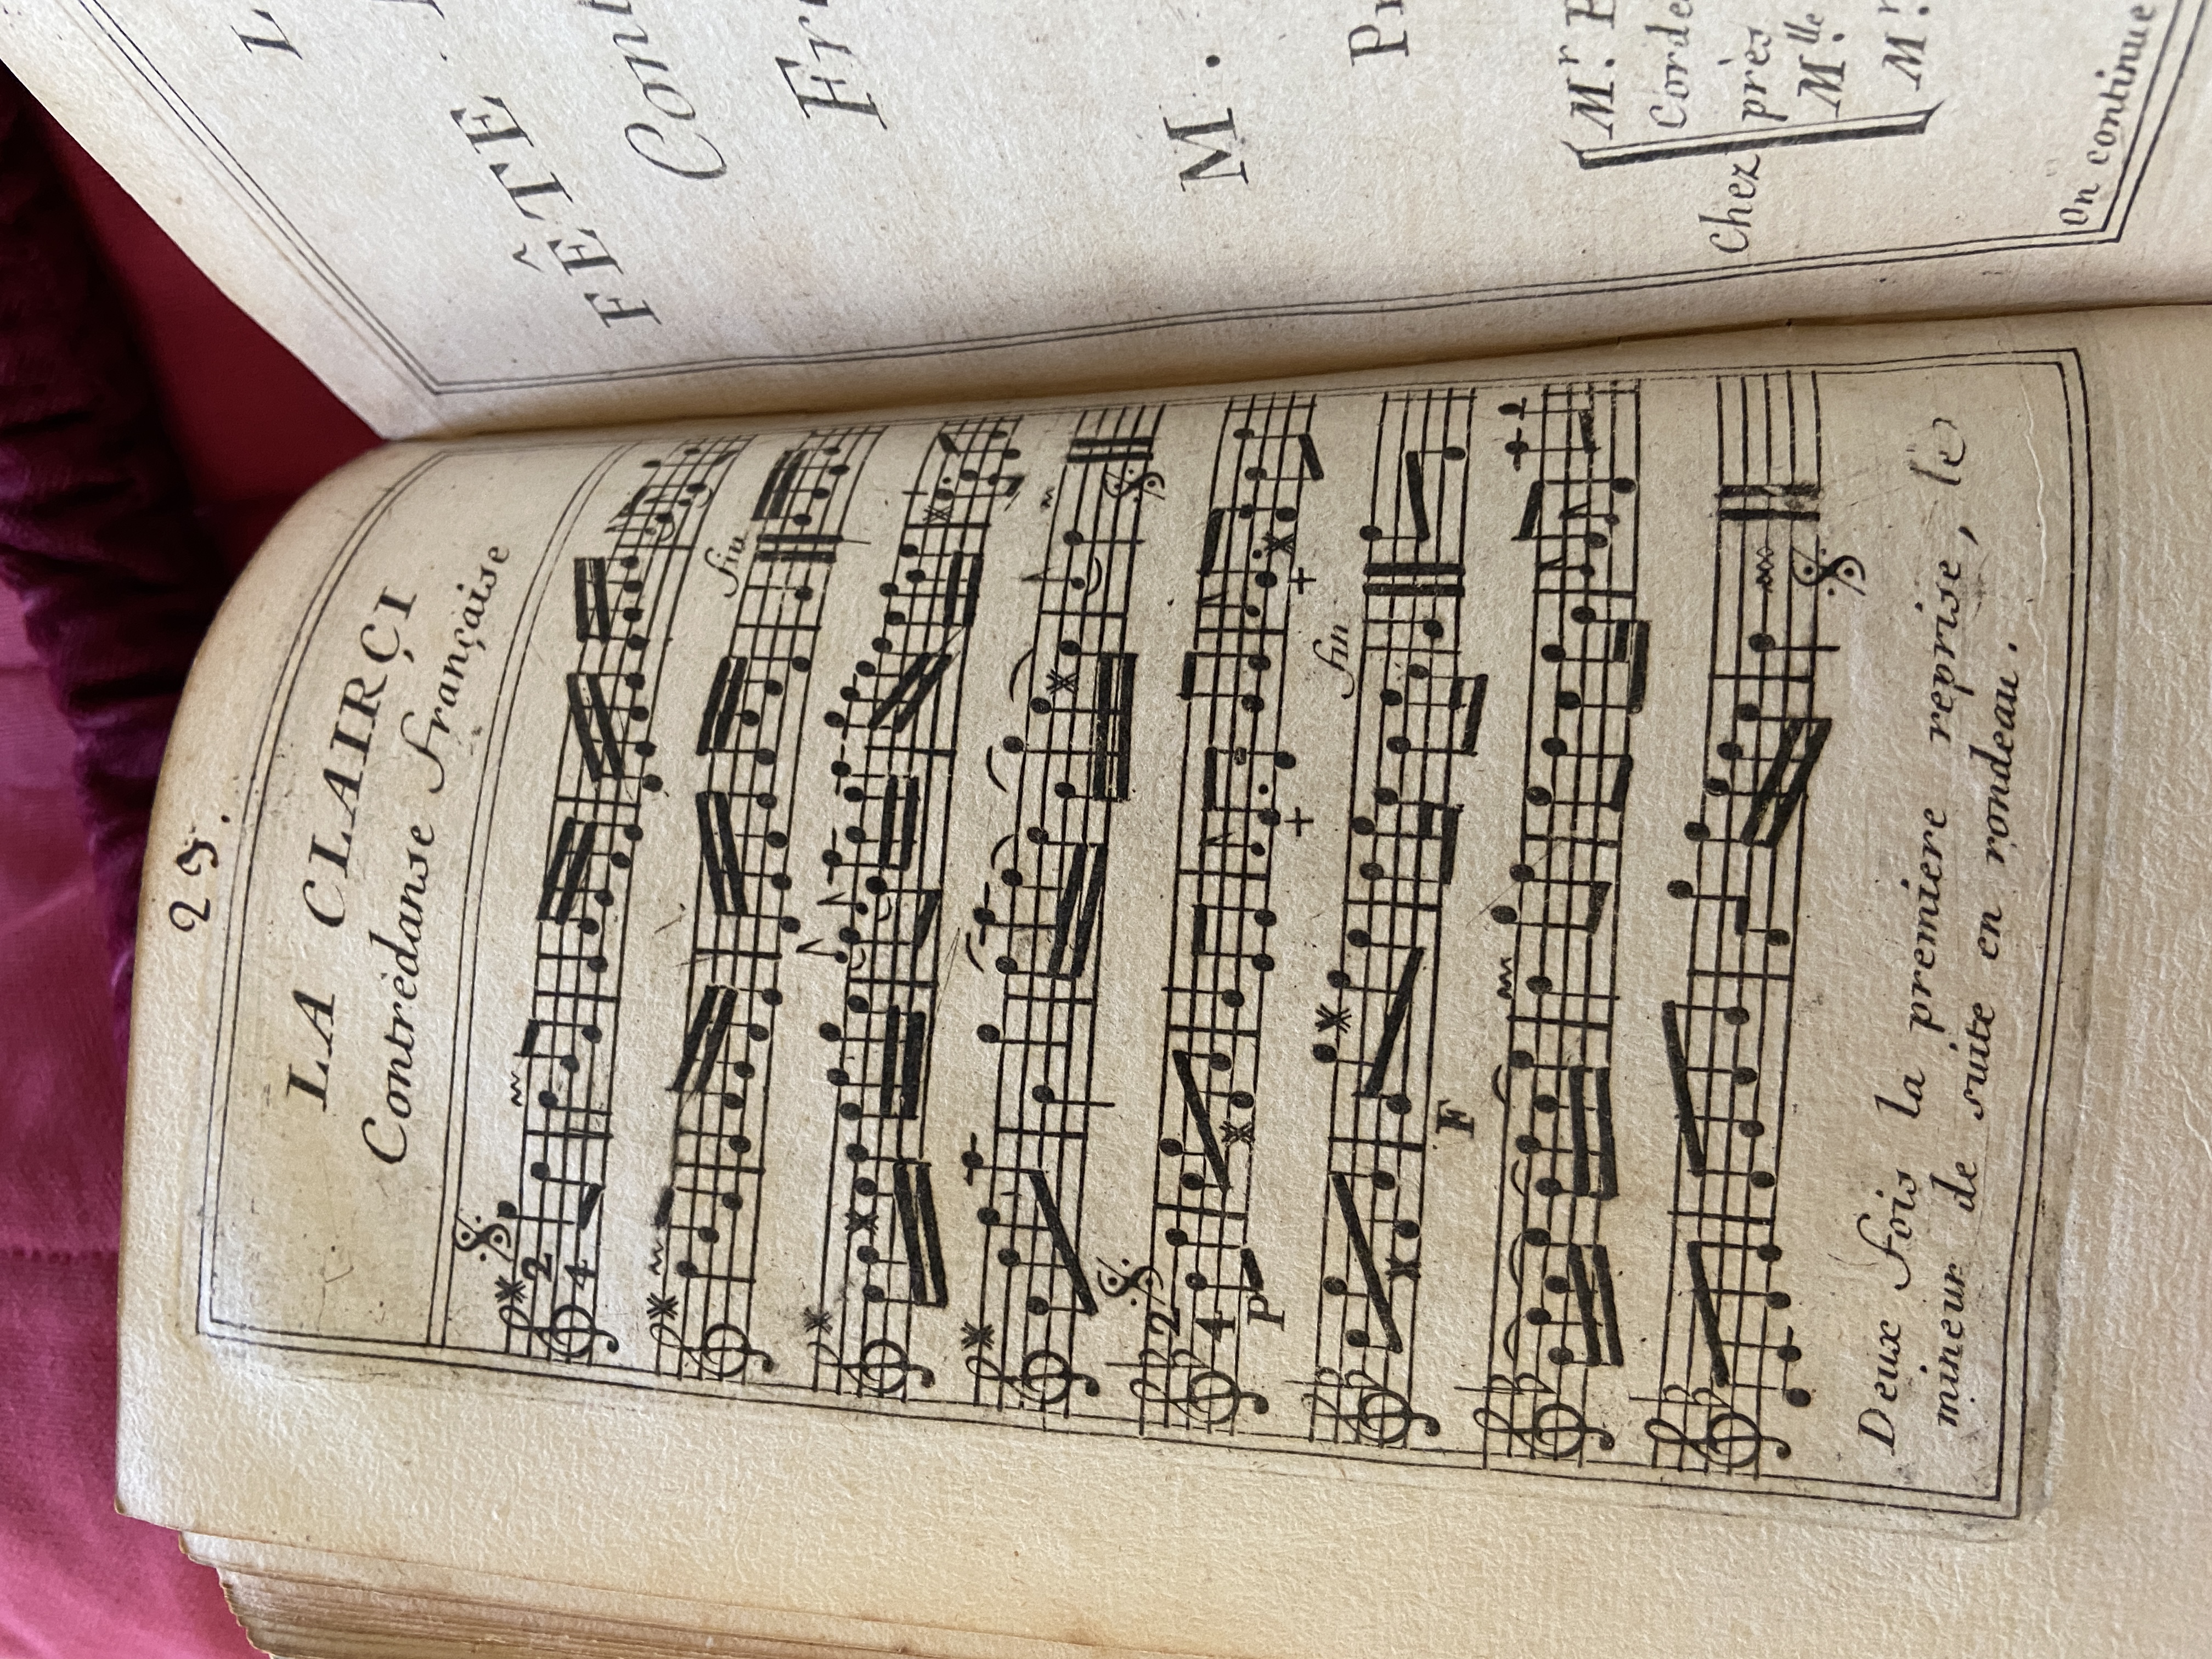 29.
LA CLAIRÇI
Contredanse française
2
4
fin
2
4
P
fin
F
Deux fois la premiere reprise, le
mineur de suite en rondeau.
FÊTE
M.
Mr.
près
Chez
Mlle.
Mr.
On continue